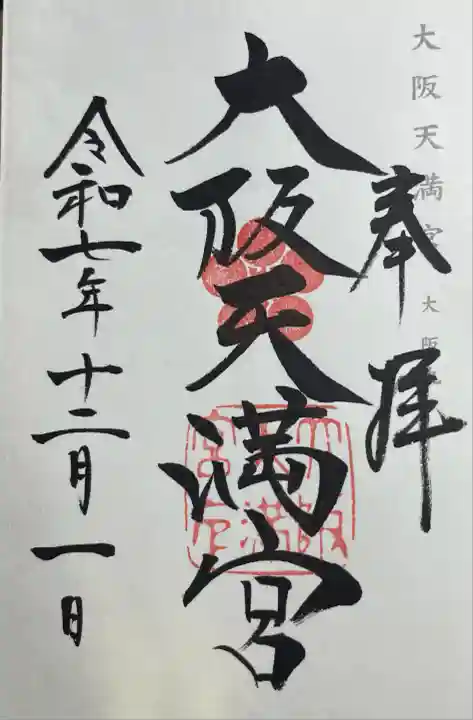 大阪天満宮 大阪
奉拝
大阪天満宮
令和七年十二月一日